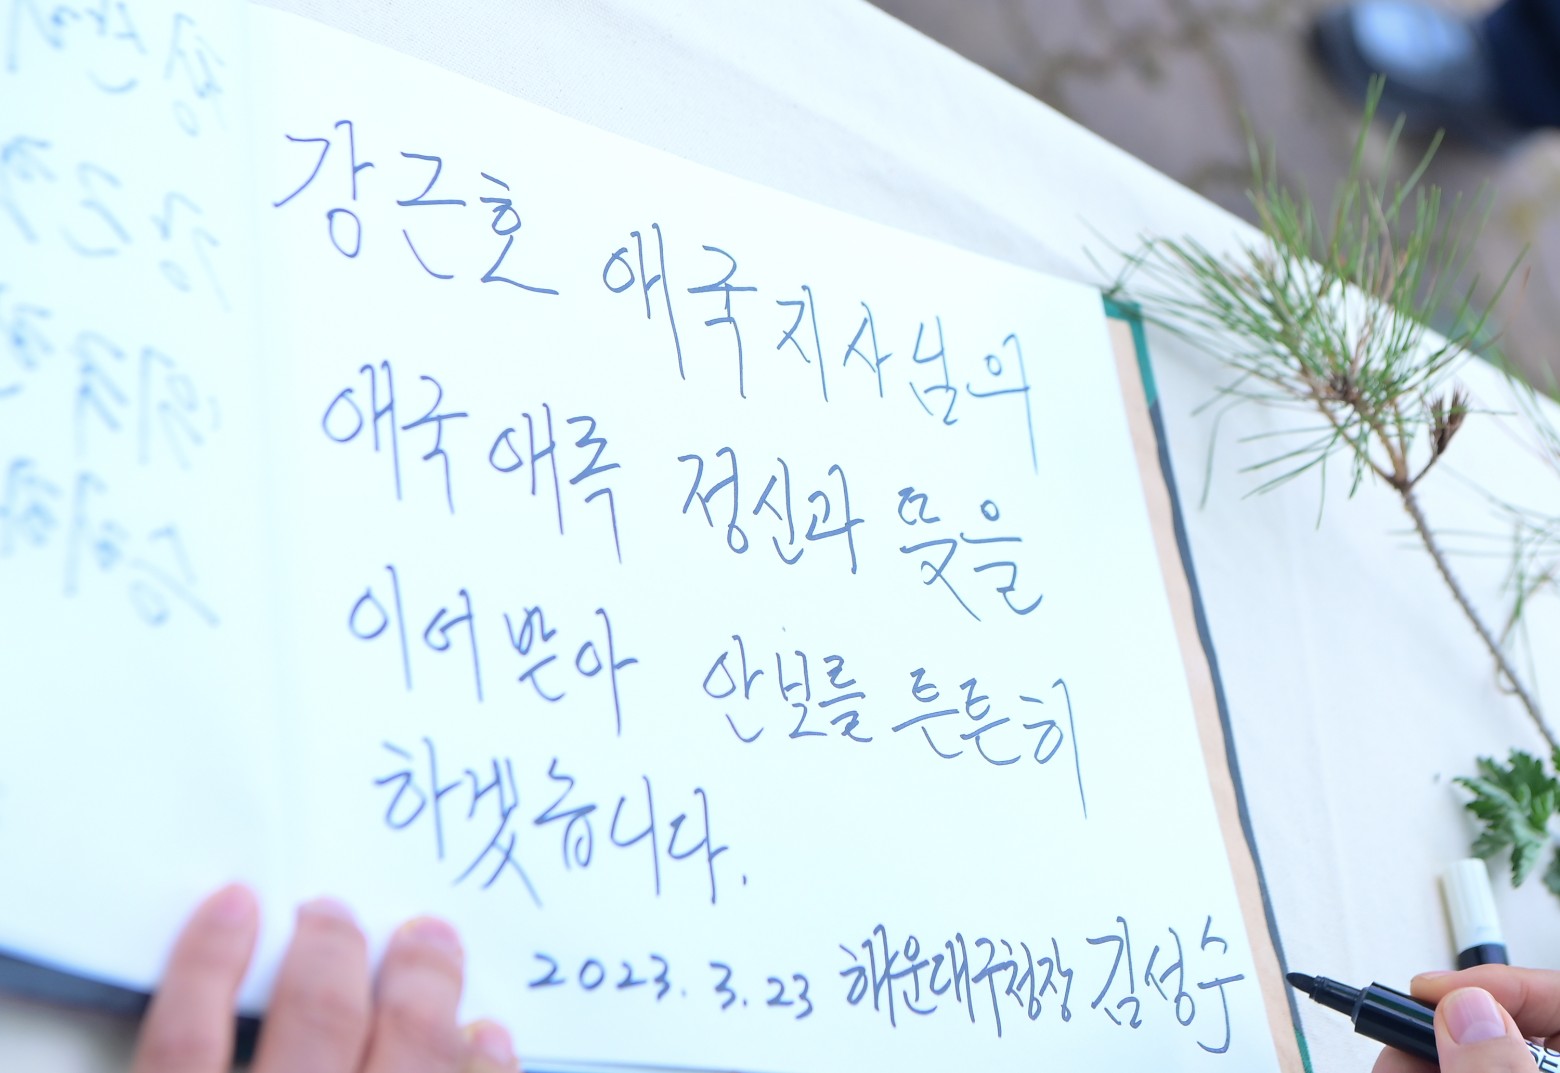 강근호 애국지사님의
애국애족 정신과 뜻을
이어받아 안보를 튼튼히
하겠습니다.
2023. 3. 23 해운대구청장 김성수